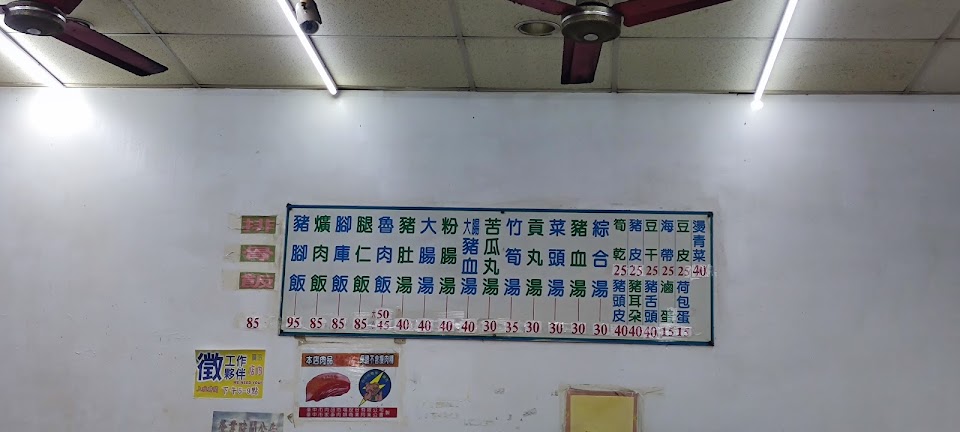 85
豬腳飯 95
爌肉飯 85
腳庫飯 85
腿仁飯 85
魯肉飯 50 45
豬肚湯 40
大腸湯 40
粉腸湯 40
大腸豬血湯 40
苦瓜丸湯 30
竹筍湯 35
貢丸湯 30
菜頭湯 30
豬血湯 30
綜合湯 30
筍乾 25
豬頭皮 40
豬皮 25
豬耳朵 40
豆干 25
豬舌頭 40
海帶 25
滷蛋 15
豆皮 25
荷包蛋 15
燙青菜 40
徵
工作
夥伴
本店肉品